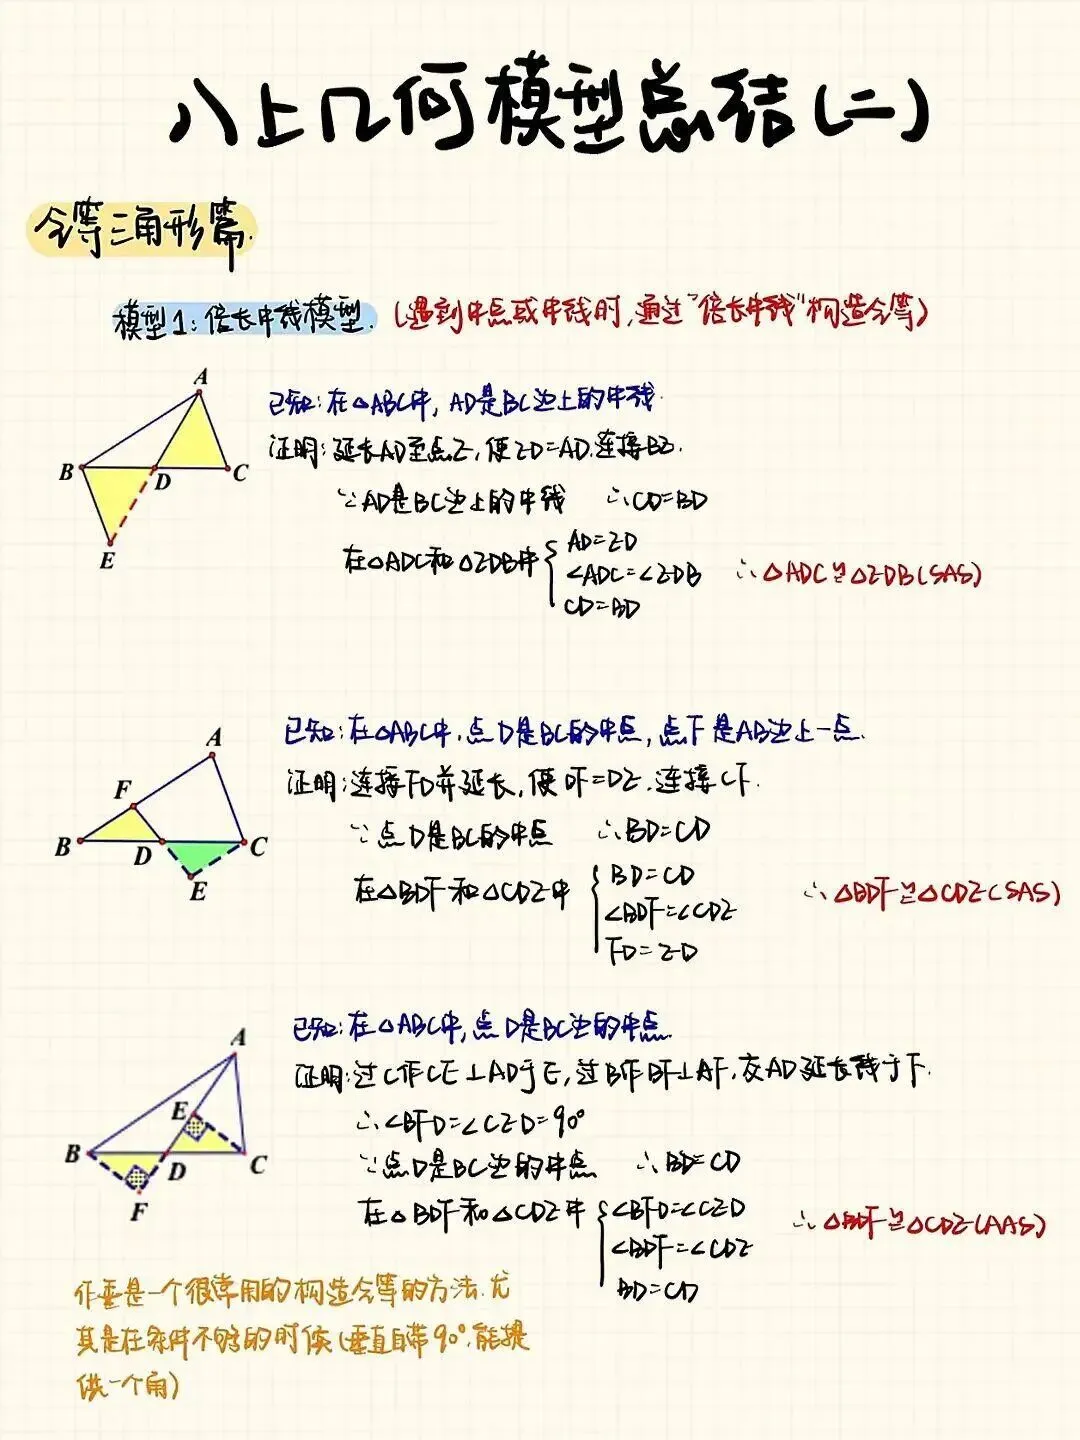 八上几何模型总结(二)
全等三角形篇.
模型1:倍长中线模型.(遇到中点或中线时,通过"倍长中线"构造全等)
A
B
D
C
E
已知:在△ABC中,AD是BC边上的中线.
证明:延长AD至点E,使ED=AD.连接BE.
∵AD是BC边上的中线 ∴CD=BD
在△ADC和△EDB中
AD=ED
∠ADC=∠EDB
CD=BD
∴△ADC≌△EDB(SAS)
A
F
B
D
C
E
已知:在△ABC中.点D是BC的中点,点F是AB边上一点.
证明:连接FD并延长,使DF=DE.连接CF.
∵点D是BC的中点 ∴BD=CD
在△BDF和△CDE中
BD=CD
∠BDF=∠CDE
FD=ED
∴△BDF≌△CDE(SAS)
A
E
B
D
C
F
已知:在△ABC中,点D是BC边的中点.
证明:过C作CE⊥AD于E,过B作BF⊥AF,交AD延长线于F.
∴∠BFD=∠CED=90°
∵点D是BC边的中点 ∴BD=CD
在△BDF和△CDE中
∠BFD=∠CED
∠BDF=∠CDE
BD=CD
∴△BDF≌△CDE(AAS)
作垂是一个很常用的构造全等的方法.尤
其是在条件不够的时候(垂直自带90°,能提
供一个角)